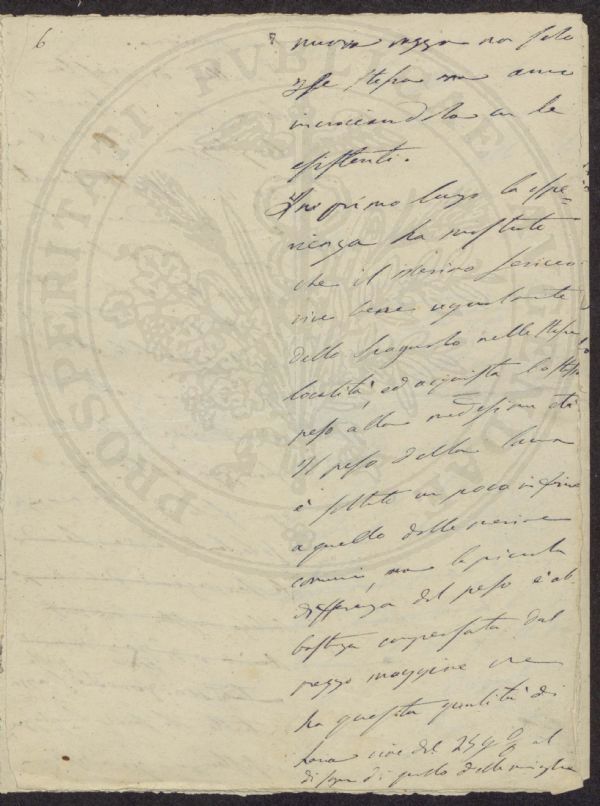 6
nuova razza non solo
esse stessa ma anco
incrociandola con le
esistenti.
In primo luogo la spe-
rienza ha mostrato
che il merino sericeo
vive bene egualmente
dello Spagnuolo nelle stesse
località, ed acquista lo stesso
peso alla medesima età
Il peso della lana
è soltanto un poco inferiore
a quello delle merine
comuni, ma la piccola
differenza del peso è ab-
bastanza compensata dal
prezzo maggiore che
ha questa qualità di
lana cioè del 25 al
di sopra di quello delle migliori
PROSPERITATI PUBLICAE AUGENDAE